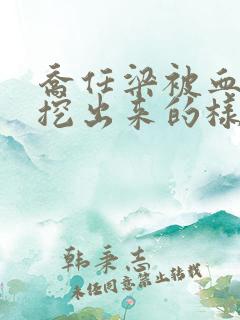 喬任梁被血
挖出来的様
韩秉志
未经同意禁止转载